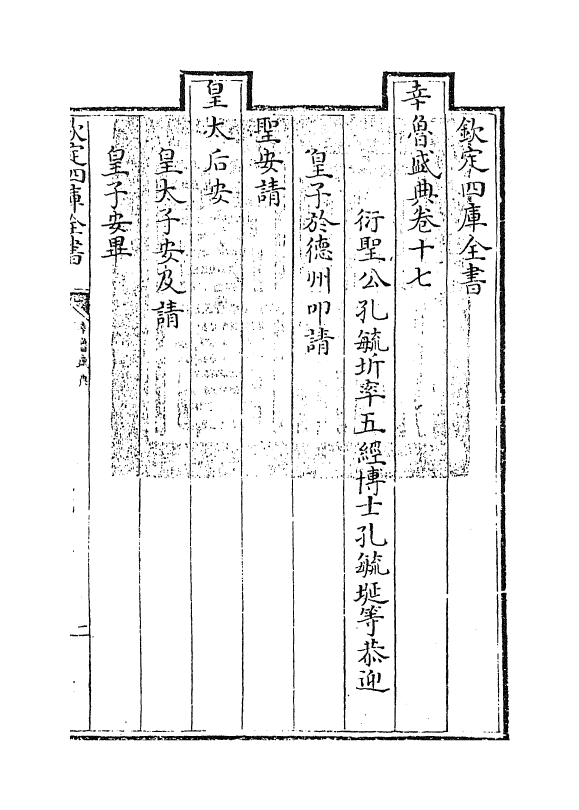 欽定四庫全書
幸魯盛典卷十七
衍聖公孔毓圻率五經博士孔毓埏等恭迎
皇子於德州叩請
聖安請
皇太后安
皇太子安及請
皇子安畢
欽定四庫全書
幸魯盛典
二